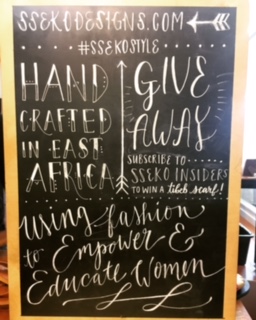 SSEKODESIGNS.COM
#SSEKOSTYLE
HAND
CRAFTED
IN EAST
AFRICA
GIVE
AWAY
SUBSCRIBE TO
SSEKO INSIDERS
TO WIN A tibeb scarf!
Using fashion
to Empower &
Educate Women